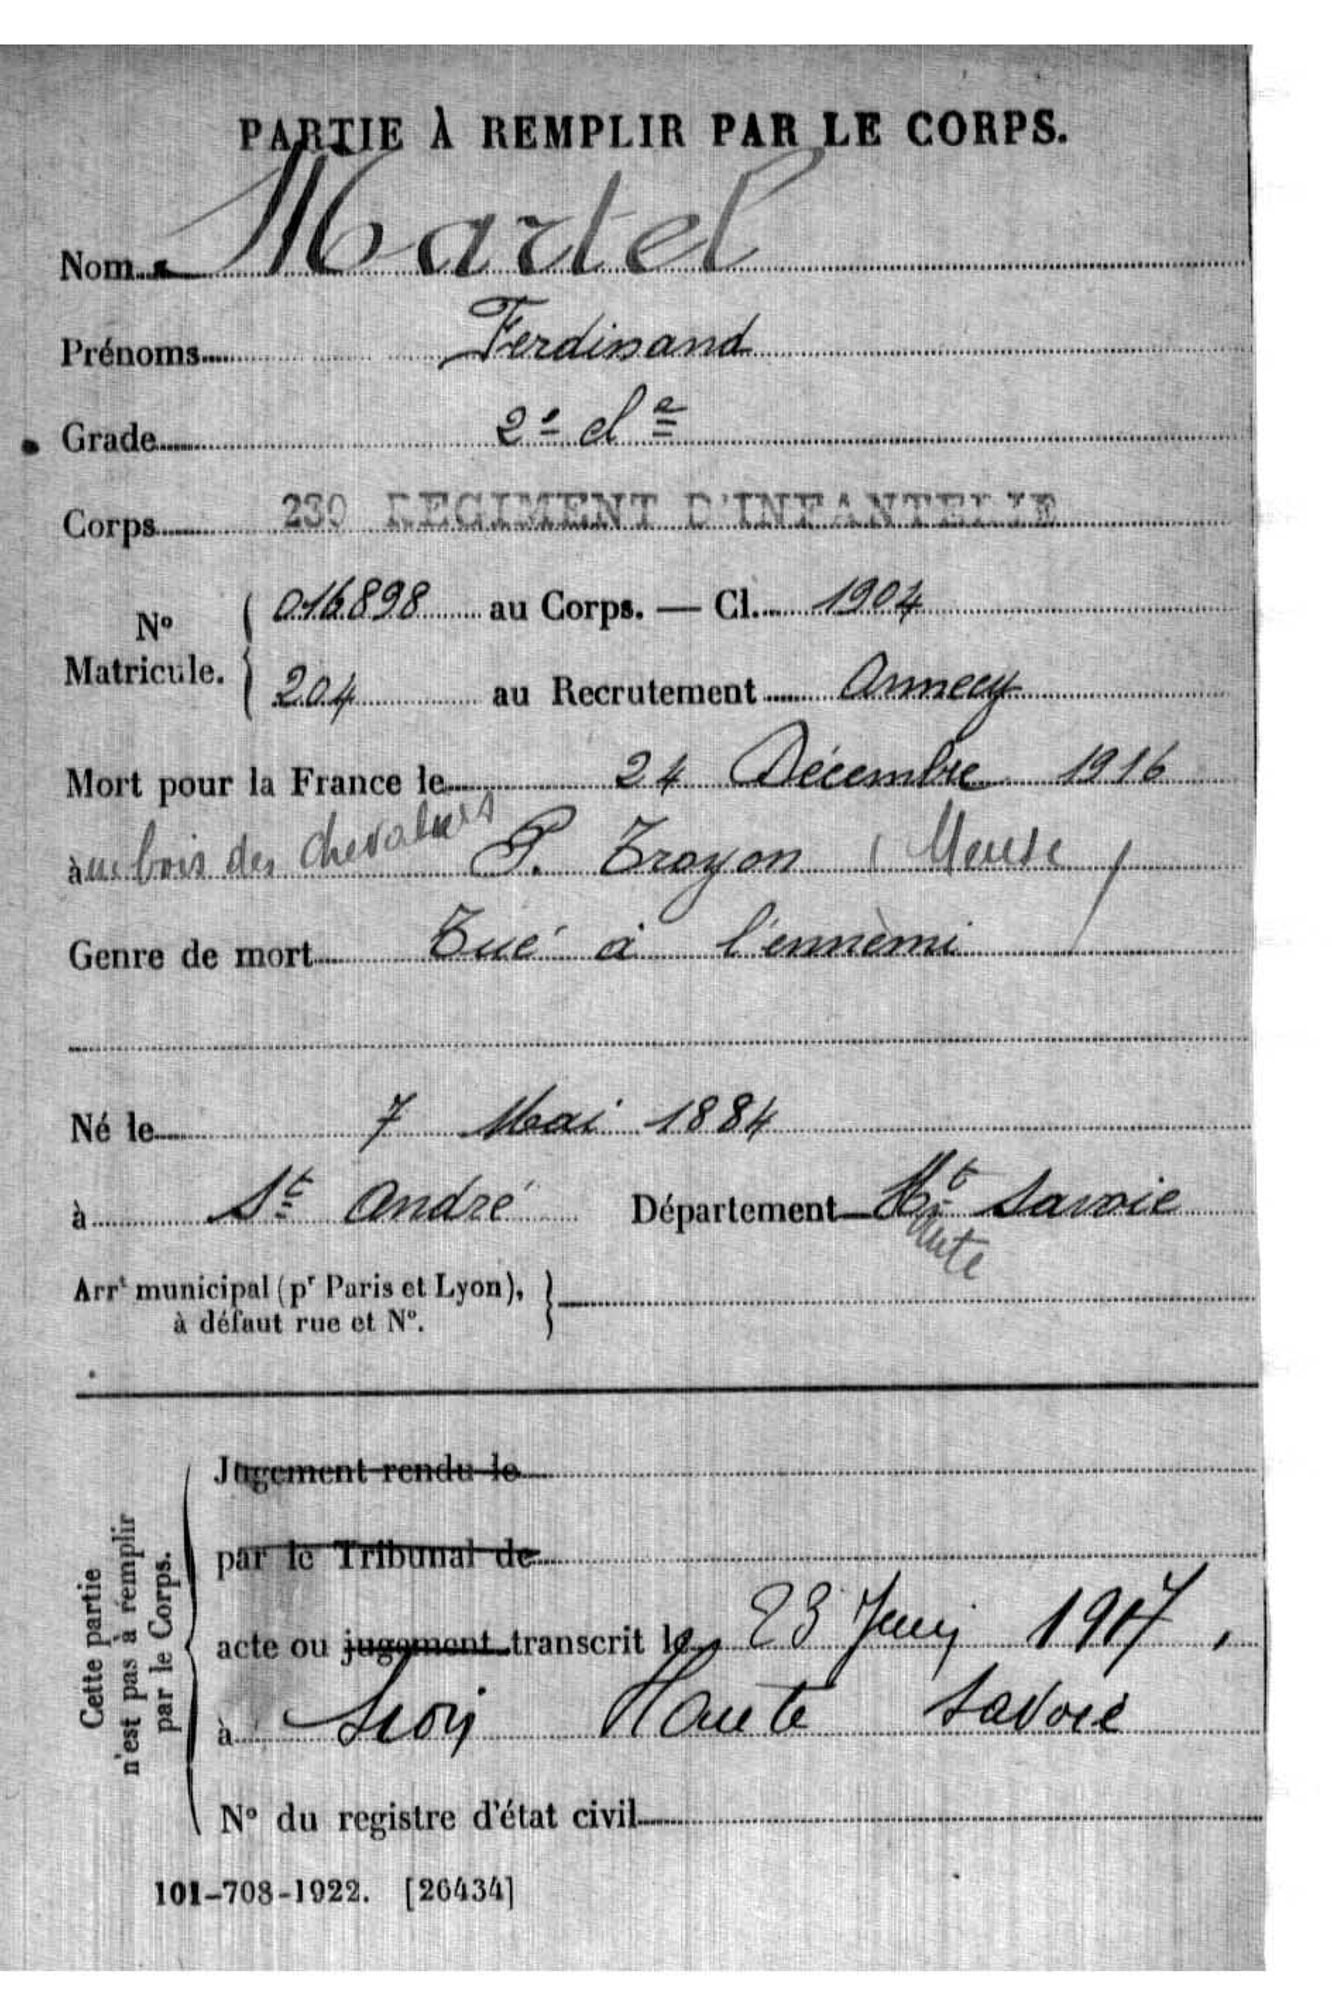 PARTIE À REMPLIR PAR LE CORPS.
Nom Martel
Prénoms Ferdinand
Grade 2e cl e
Corps 230 REGIMENT D'INFANTERIE
N° Matricule. { 016898 au Corps. — Cl. 1904
204 au Recrutement Annecy
Mort pour la France le 24 Décembre 1916
à au bois des chevaliers P. Troyon (Meuse)
Genre de mort Tué à l'ennèmi
Né le 7 Mai 1884
à St André Département Hte Savoie
Hute
Arrt municipal (pr Paris et Lyon), }
à défaut rue et N°.
Cette partie
n'est pas à remplir
par le Corps.
Jugement rendu le
par le Tribunal de
acte ou jugement transcrit le 23 Juin 1917,
à Haute Savoie
N° du registre d'état civil
101-708-1922. [26434]